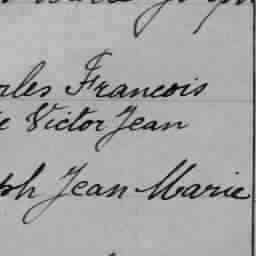 rles Francois
e Victor Jean
ph Jean Marie